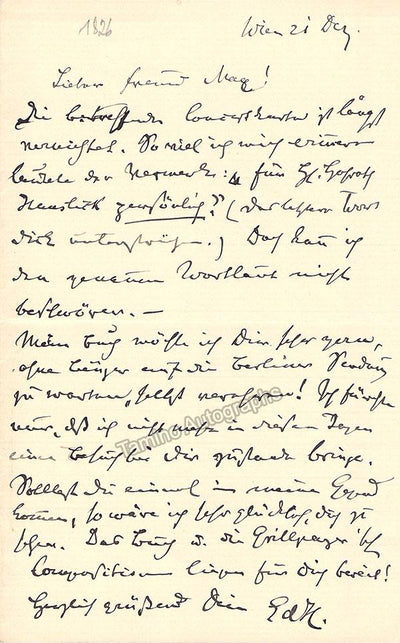 1826
Wien 21 Dez.
Lieber Freund Max!
Die betreffende Concertkarte ist längst
vernichtet. So viel ich mich erinnere
lautete der Vermerk: „für H. Hofrath
Hanslick persönlich“? (das letztere Wort
dick unterstrichen.) Doch kann ich
den genauen Wortlaut nicht
beschwören. —
Mein Buch möchte ich Dir sehr gern,
ohne länger auf die Berliner Sendung
zu warten, selbst verehren! Ich fürchte
nur, daß ich nicht mehr in diesen Tagen
einen Besuch bei Dir zustande bringe.
Solltest Du einmal in meine Gegend
kommen, so wäre ich sehr glücklich, dich zu
sehen. Das Buch u. die Grillparzer'sch
Compositionen liegen für Dich bereit!
Herzlich grüßend Dein Ed H.
Tamino Autographs